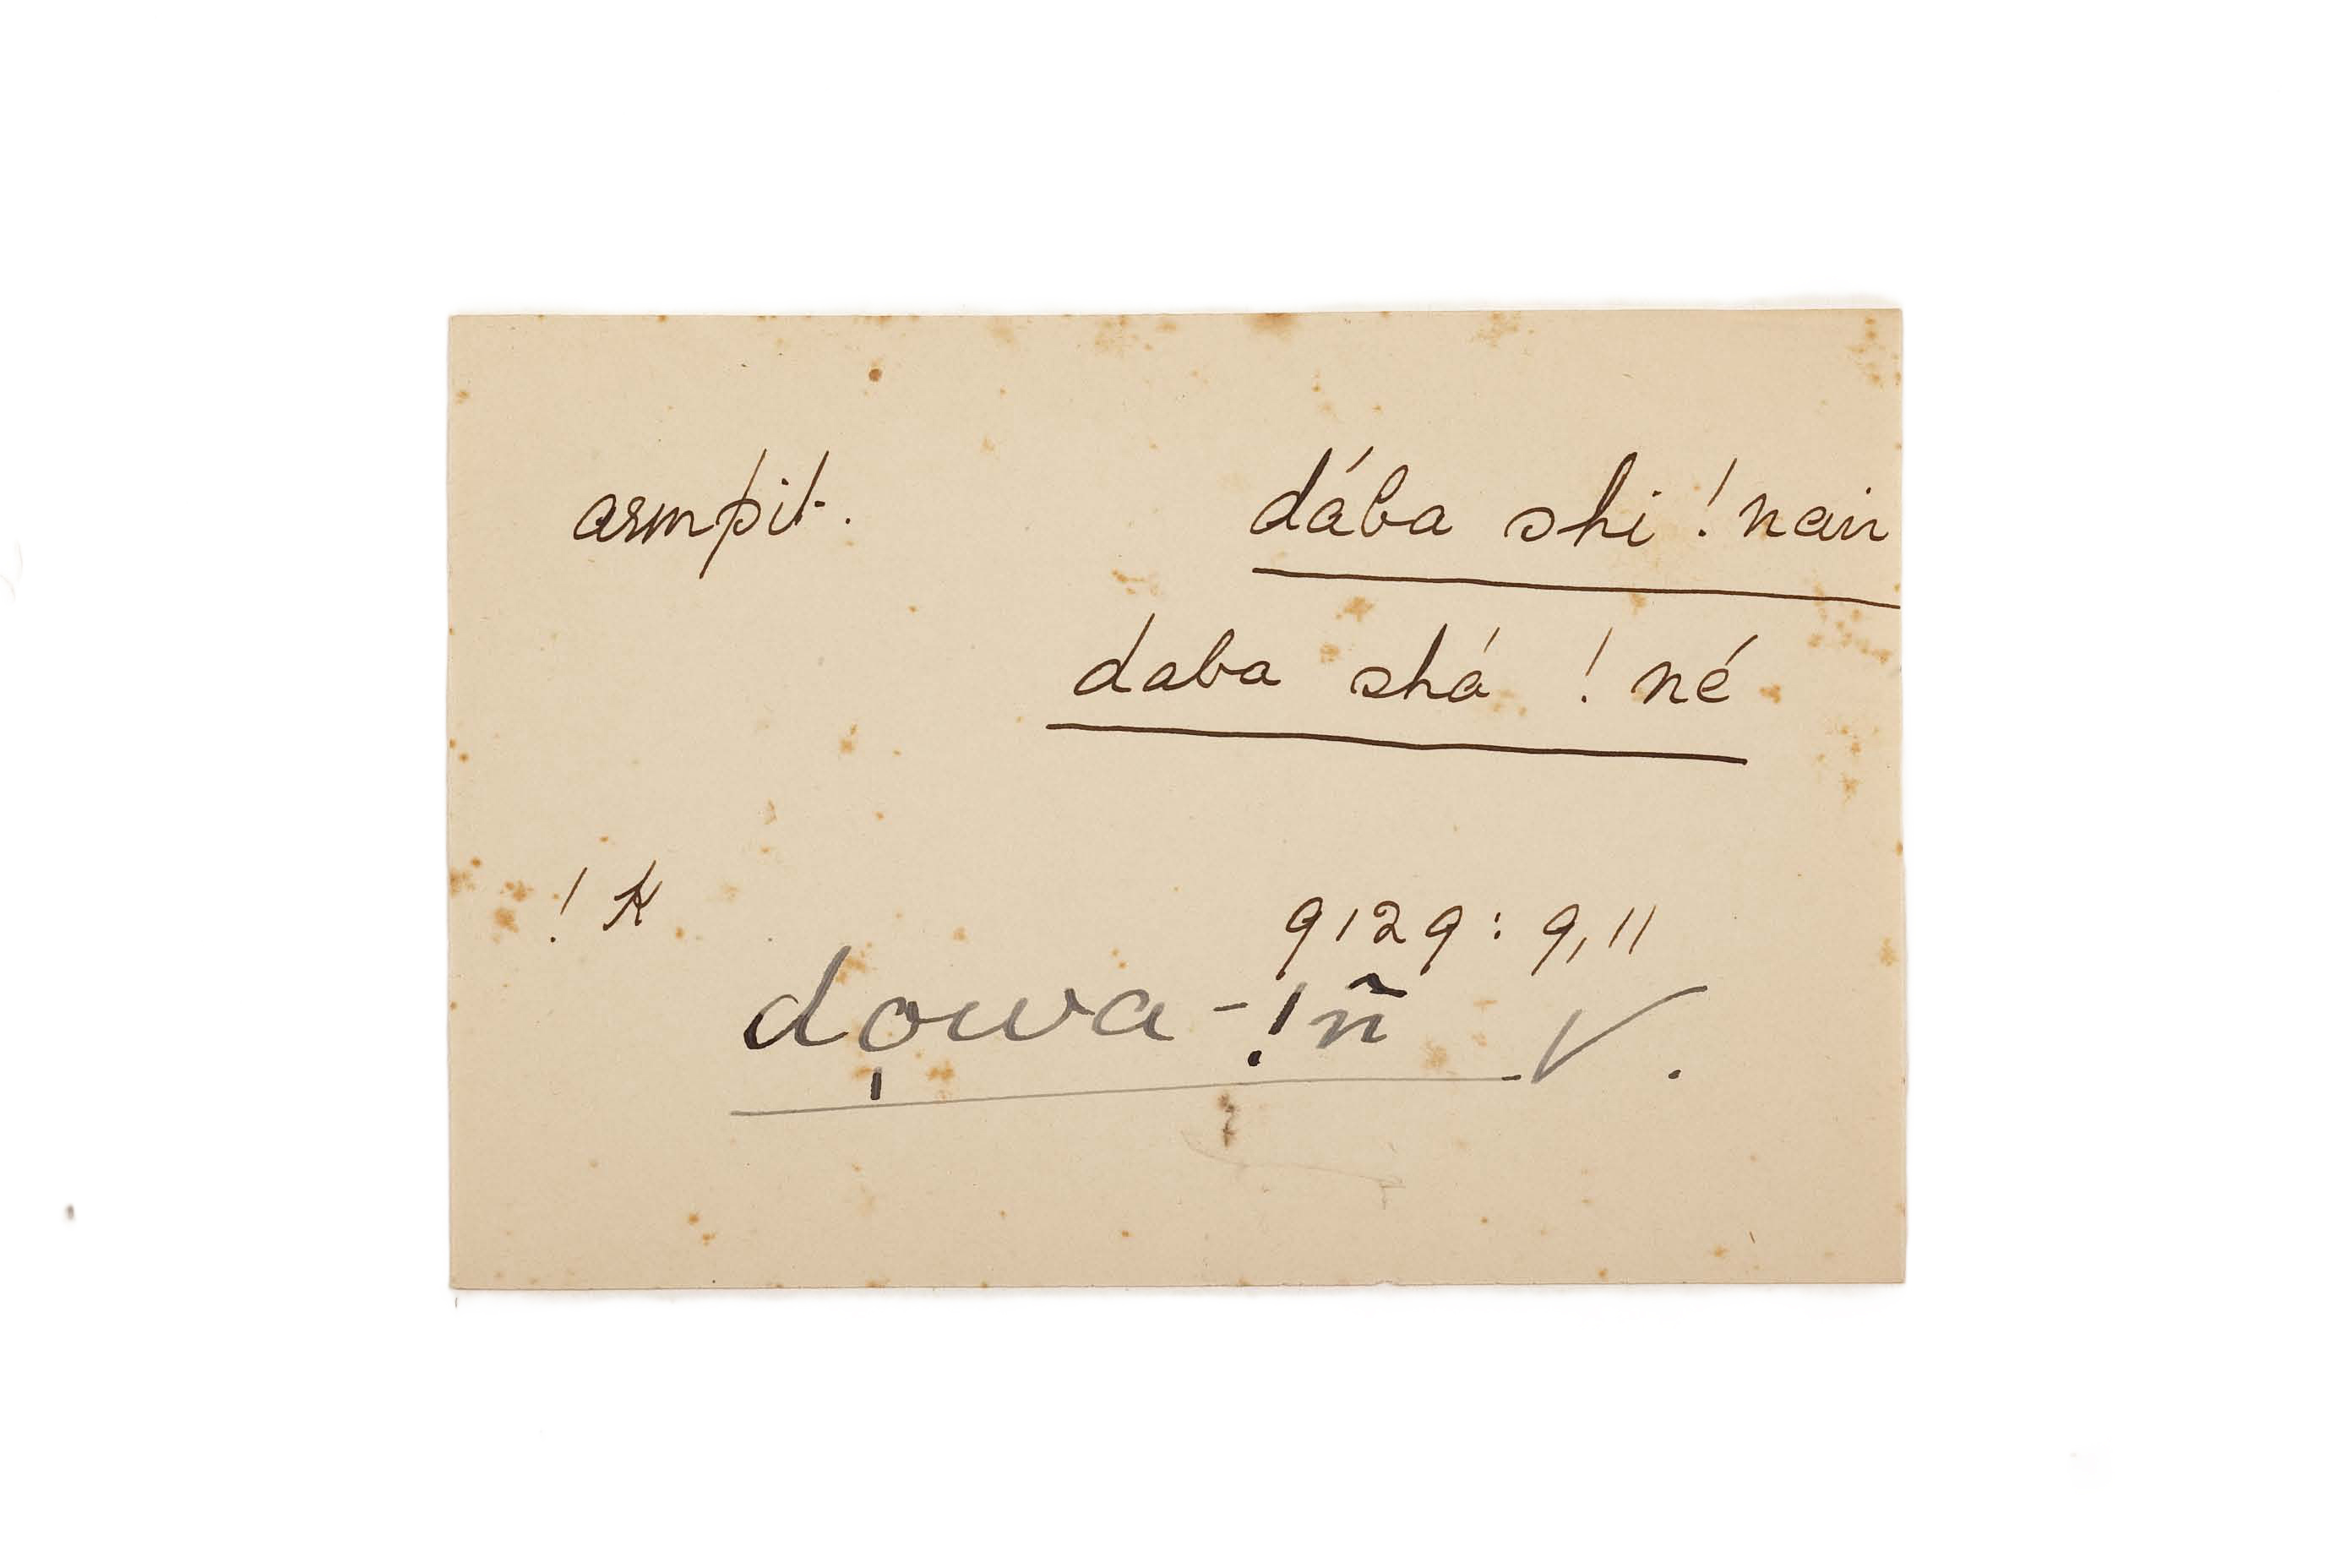 armpit. dába shi !nain
daba shá !né
!K 9129: 9, 11
dọwa-!ñ